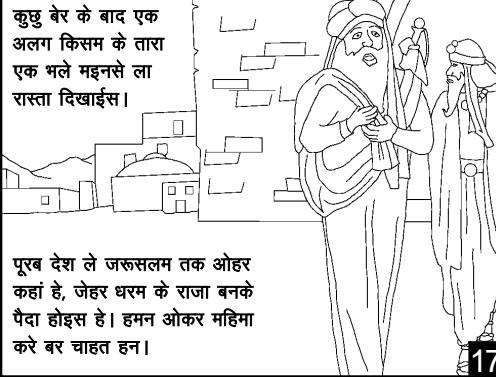 कुछु बेर के बाद एक
अलग किसम के तारा
एक भले मइनसे ला
रास्ता दिखाईस।
पूरब देश ले जरूसलम तक ओहर
कहां हे, जेहर धरम के राजा बनके
पैदा होइस हे। हमन ओकर महिमा
करे बर चाहत हन।
17